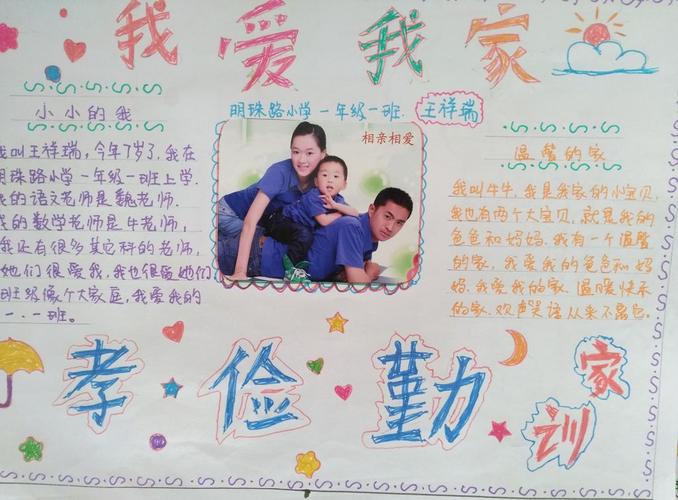 我爱我家
明珠路小学一年级一班. 王祥瑞
小小的我
我叫王祥瑞,今年7岁了,我在
明珠路小学一年级一班上学.
我的语文老师是魏老师.
我的数学老师是牛老师,
我还有很多其它科的老师,
她们很爱我,我也很爱她们
班级像个大家庭,我爱我的
一.一班。
相亲相爱
温馨的家
我叫牛牛,我是我家的小宝贝,
我也有两个大宝贝,就是我的
爸爸和妈妈.我有一个温馨
的家,我爱我的爸爸和妈
妈.我爱我的家.温暖快乐
的家.欢声笑语从来不
孝俭勤
家训